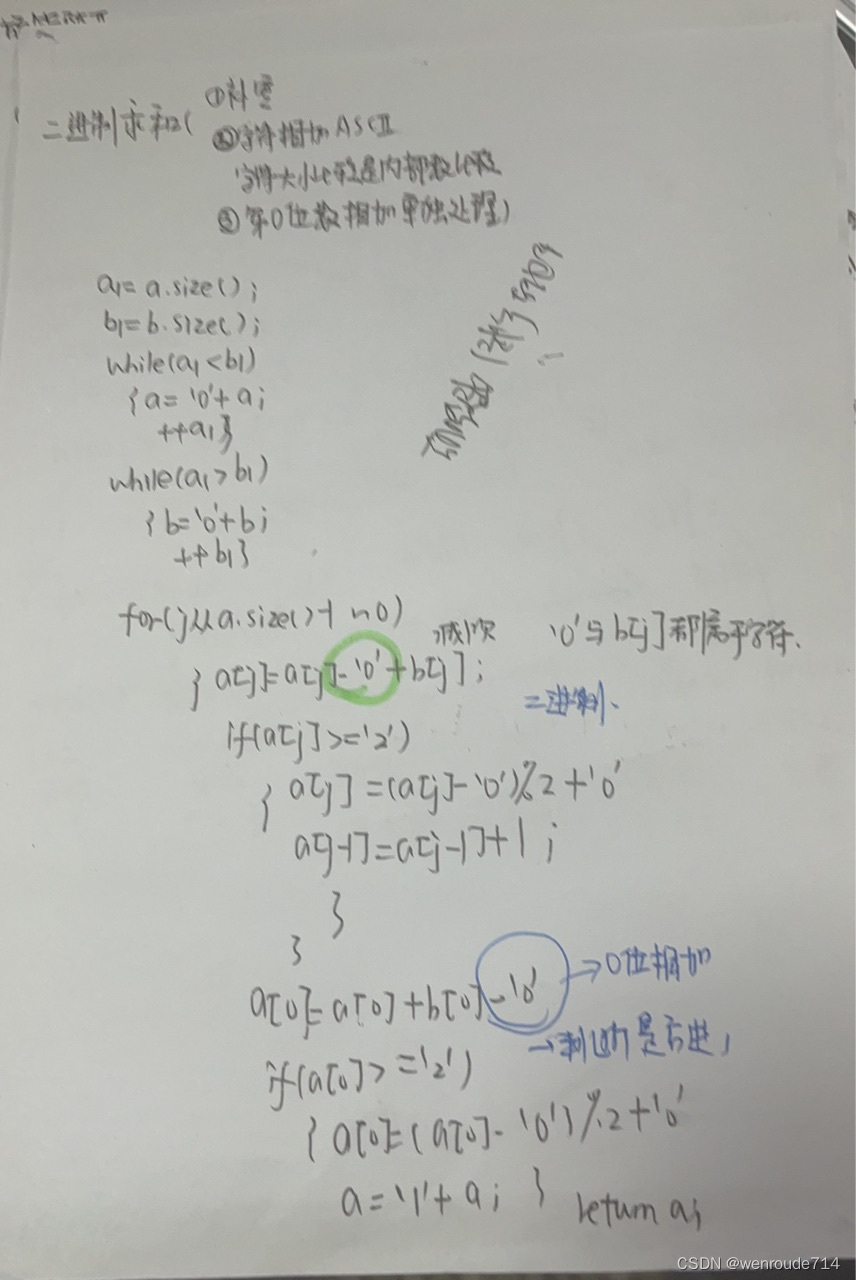 二进制求和(①补零
②字符相加ASCII
字符大小比较是内部数比较
③第0位数相加单独处理)
a1=a.size();
b1=b.size();
while(a1<b1)
{a='0'+a;
++a1}
while(a1>b1)
{b='0'+b;
++b1}
for(j从a.size()-1 →0)
{a[j]=a[j]-'0'+b[j];
减1次 '0'与b[j]都属于字符.
二进制.
if(a[j]>='2')
{a[j]=(a[j]-'0')%2+'0'
a[j-1]=a[j-1]+1;
}
}
a[0]=a[0]+b[0]-'0'
→0位相加
→判断是否进1
if(a[0]>='2')
{a[0]=(a[0]-'0')%2+'0'
a='1'+a;} return a;
CSDN @wenroude714